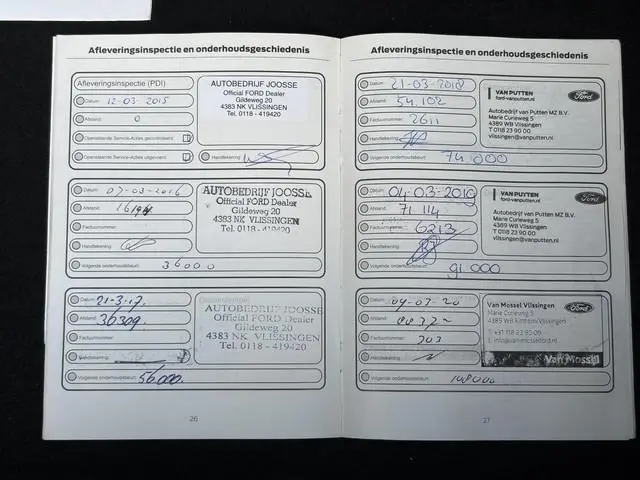 Afleveringsinspectie en onderhoudsgeschiedenis
Afleveringsinspectie (PDI)
Datum: 12-03-2015
Afstand: 0
Openstaande Service-Acties gecontroleerd
Openstaande Service-Acties uitgevoerd
Handtekening:
AUTOBEDRIJF JOOSSE
Official FORD Dealer
Gildeweg 20
4383 NK VLISSINGEN
Tel. 0118 - 419420
Datum: 07-03-2016
Afstand:
Factuurnummer:
Handtekening:
Volgende onderhoudsbeurt: 36000
AUTOBEDRIJF JOOSSE
Official FORD Dealer
Gildeweg 20
4383 NK VLISSINGEN
Tel. 0118 - 419420
Datum: 21-3-17.
Afstand: 36309.
Factuurnummer:
Handtekening:
Volgende onderhoudsbeurt: 56000.
AUTOBEDRIJF JOOSSE
Official FORD Dealer
Gildeweg 20
4383 NK VLISSINGEN
Tel. 0118 - 419420
26
Afleveringsinspectie en onderhoudsgeschiedenis
Datum: 21-03-2018
Afstand: 54.102
Factuurnummer: 2611
Handtekening:
Volgende onderhoudsbeurt: 74.000
VAN PUTTEN
ford-vanputten.nl
Ford
Autobedrijf van Putten MZ B.V.
Marie Curieweg 5
4389 WB Vlissingen
T 0118 23 90 00
vlissingen@vanputten.nl
Datum: 04-03-2019
Afstand: 71.114
Factuurnummer: 6213
Handtekening:
Volgende onderhoudsbeurt: 91.000
VAN PUTTEN
ford-vanputten.nl
Ford
Autobedrijf van Putten MZ B.V.
Marie Curieweg 5
4389 WB Vlissingen
T 0118 23 90 00
vlissingen@vanputten.nl
Datum: 04-03-20
Afstand:
Factuurnummer: 303
Handtekening:
Volgende onderhoudsbeurt: 108000
Van Mossel Vlissingen
Ford
Marie Curieweg 5
4389 WB Ritthem/Vlissingen
Van Mossel
27